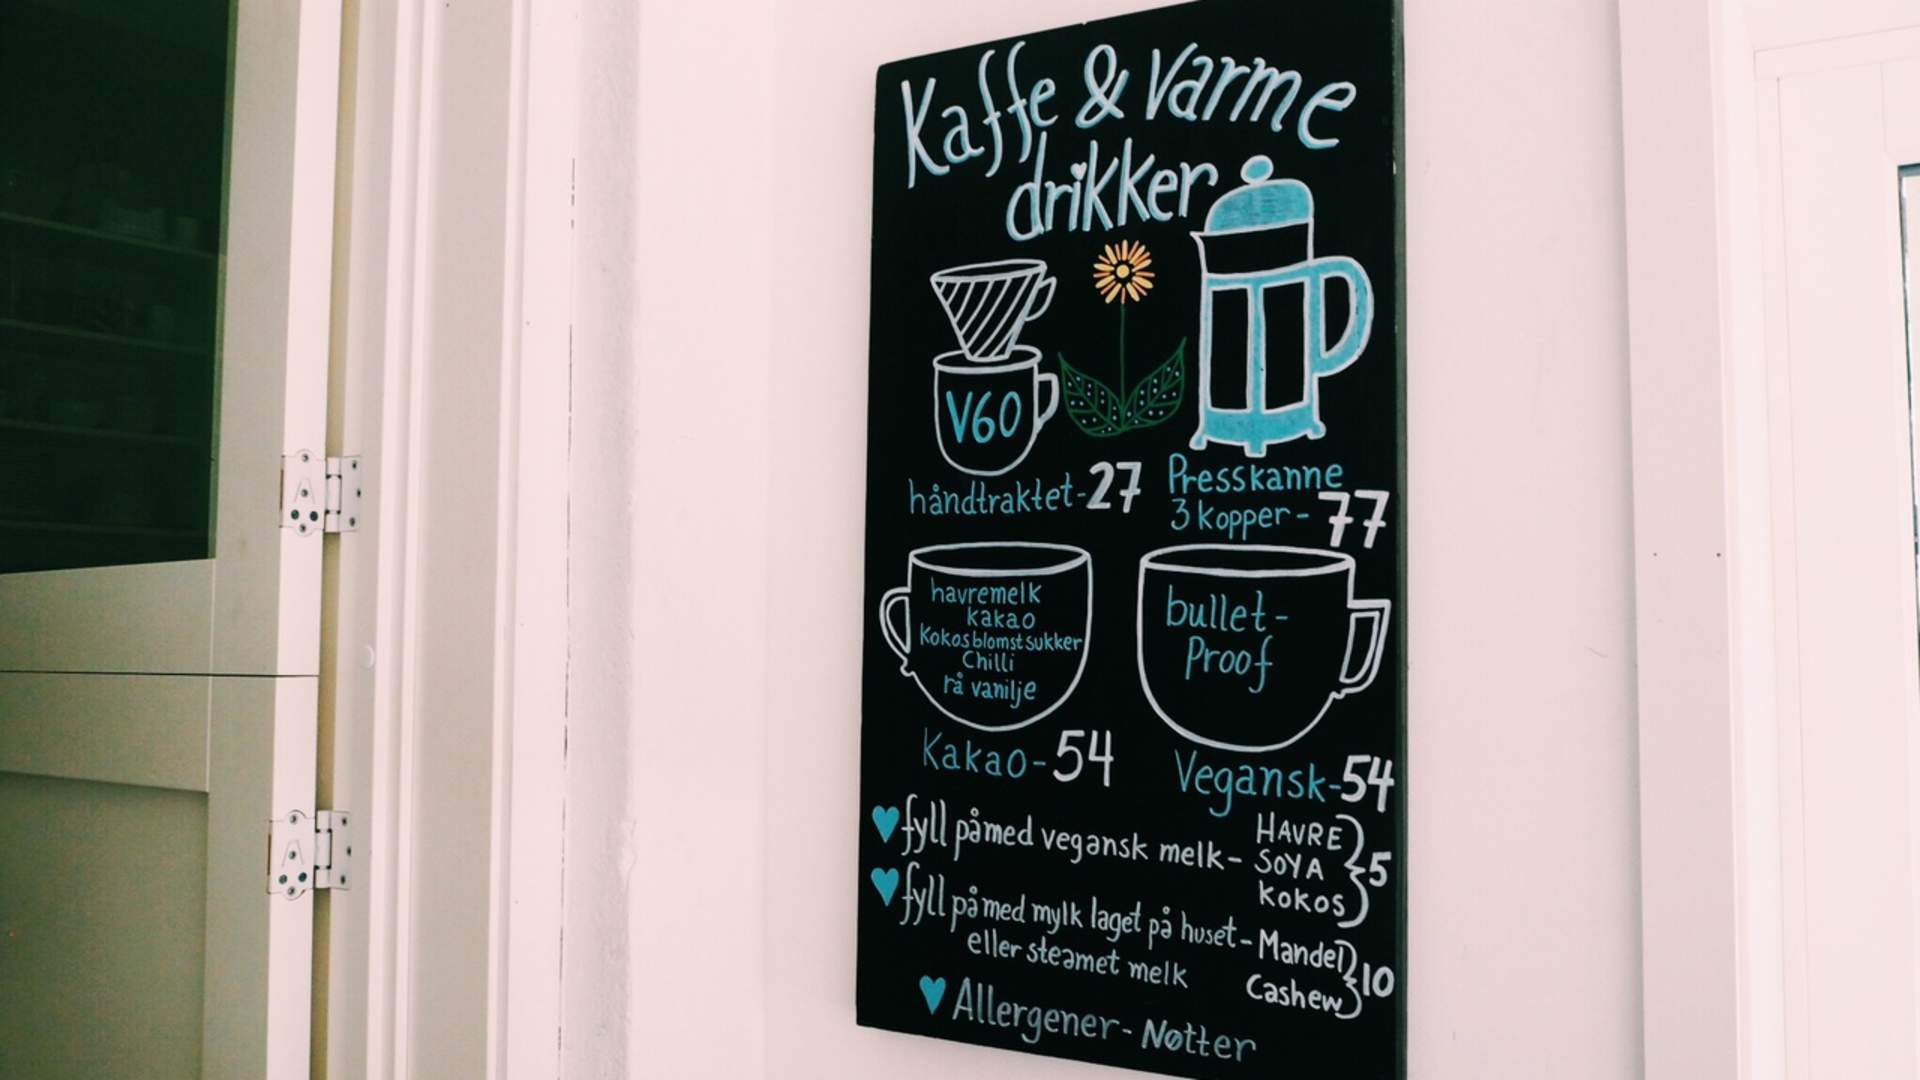 Kaffe & varme
drikker
V60
håndtraktet-27
Presskanne
3 kopper - 77
havremelk
kakao
Kokosblomstsukker
Chilli
rå vanilje
Kakao-54
bullet-
Proof
Vegansk-54
fyll påmed vegansk melk- HAVRE
SOYA
KOKOS
5
fyll påmed mylk laget på huset- Mandel
eller steamet melk
Cashew
10
Allergener- Nøtter